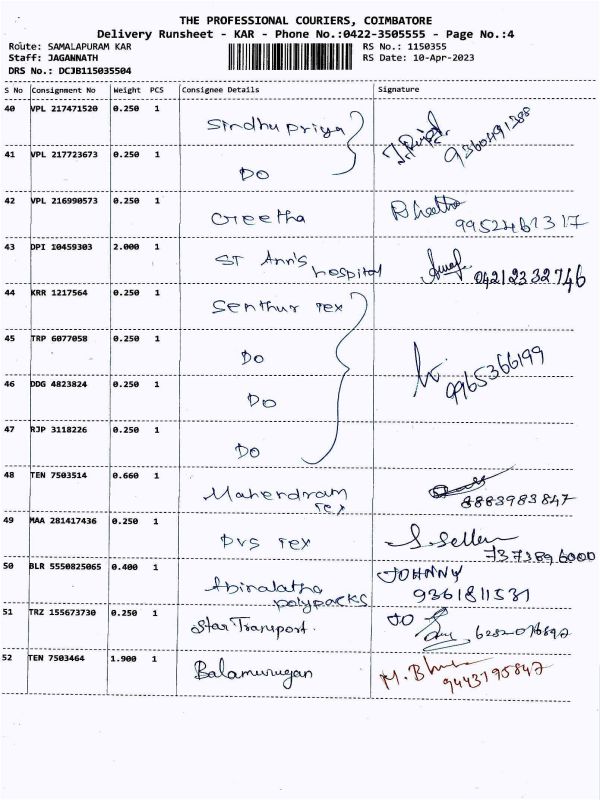 THE PROFESSIONAL COURIERS, COIMBATORE
Delivery Runsheet - KAR - Phone No.:0422-3505555 - Page No.:4
Route: SAMALAPURAM KAR
RS No.: 1150355
Staff: JAGANNATH
RS Date: 10-Apr-2023
DRS No.: DCJB115035504
S No Consignment No Weight PCS Consignee Details Signature
40 VPL 217471520 0.250 1 Sindhupriya
9360491388
41 VPL 217723673 0.250 1 DO
42 VPL 216990573 0.250 1 Greetha
9952461317
43 DPI 10459303 2.000 1 ST Ann's hospital
04212332746
44 KRR 1217564 0.250 1 Senthur Tex
45 TRP 6077058 0.250 1 DO
9965366199
46 DDG 4823824 0.250 1 DO
47 RJP 3118226 0.250 1 DO
48 TEN 7503514 0.660 1 Mahendram Tex
8883983847
49 MAA 281417436 0.250 1 PVS Tex
7373896000
50 BLR 5550825065 0.400 1 Abinalatha polypacks JOHNNY
9361811531
51 TRZ 155673730 0.250 1 Star Transport.
52 TEN 7503464 1.900 1 Balamurugan
9443195847